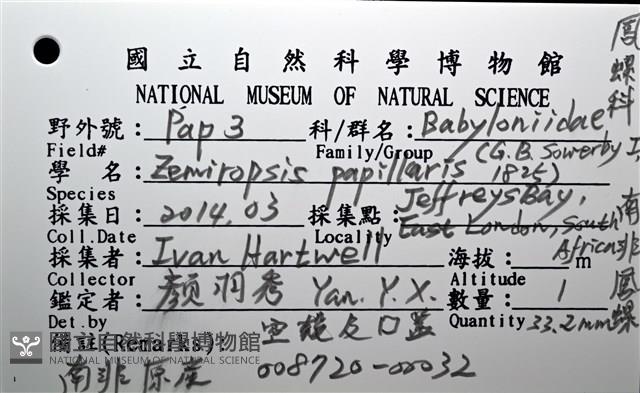 國立自然科學博物館
NATIONAL MUSEUM OF NATURAL SCIENCE
鳳螺科
野外號: Pap 3 科/群名: Babyloniidae
Field# Family/Group (G.B. Sowerby I, 1825)
學 名: Zemiropsis papillaris
Species
採集日: 2014.03 採集點: Jeffreys Bay, East London, South Africa
Coll.Date Locality
南非鳳螺
採集者: Ivan Hartwell 海拔: m
Collector Altitude
鑑定者: 顏羽秀 Yan. Y. X. 數量: 1
Det.by Quantity 33.2mm
空殼及口蓋
備註(Remarks):
國立自然科學博物館
NATIONAL MUSEUM OF NATURAL SCIENCE
南非原產 008720-00032